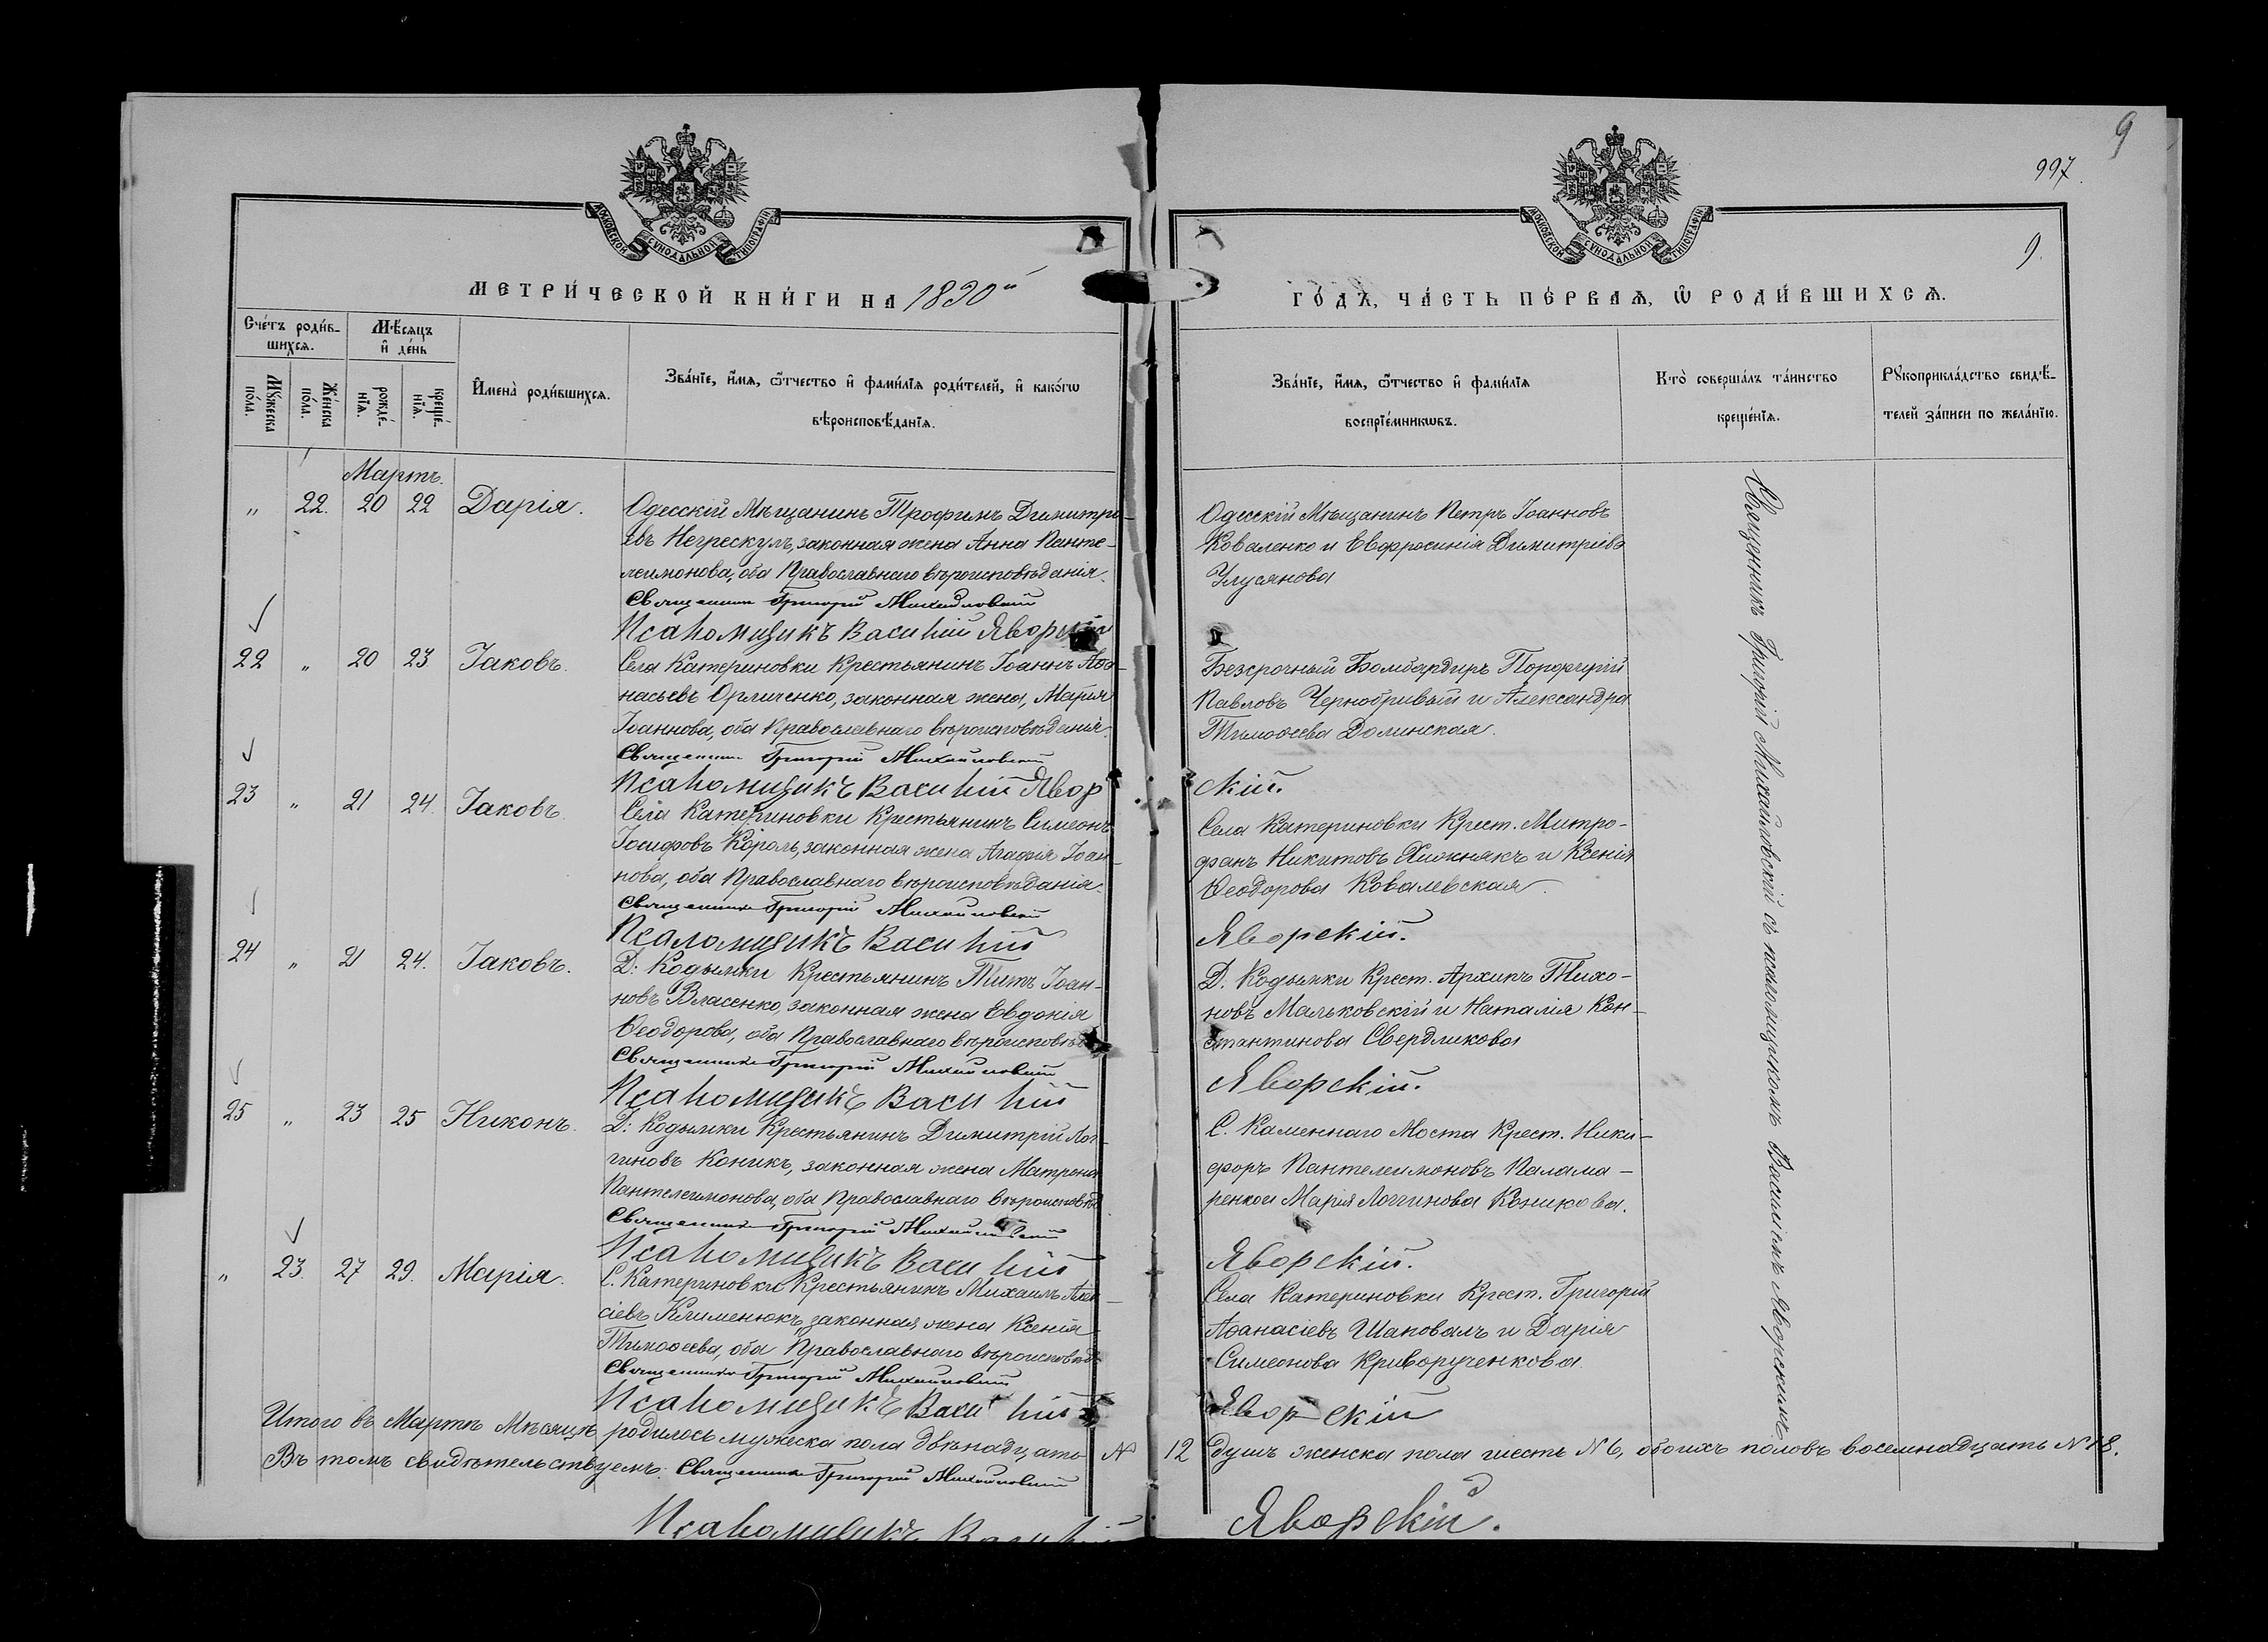 9
997.
МОСКОВСКОЙ СѴНОДАЛЬНОЙ ТИПОГРАФІИ
МОСКОВСКОЙ СѴНОДАЛЬНОЙ ТИПОГРАФІИ
9.
МЕТРИ́ЧЕСКОЙ КНИ́ГИ НА 1890й
ГО́ДЪ, ЧА́СТЬ ПЕ́РВАѦ, Ѡ҆ РОДИ́ВШИХСѦ.
Сче́тъ роди́вшихсѧ.
Мѣ́сѧцъ и҆ де́нь
Мꙋ́жеска по́ла.
Же́нска по́ла.
рожде́нїѧ.
креще́нїѧ.
И҆мена̀ роди́вшихсѧ.
Зва́нїе, и҆́мѧ, ѻ҆́тчество и҆ фамѝлїѧ роди́телей, и҆ како́гѡ
вѣроисповѣ́данїѧ.
Зва́нїе, и҆́мѧ, ѻ҆́тчество и҆ фамѝлїѧ
воспрїе́мникѡвъ.
Кто̀ соверша́лъ та́инство
креще́нїѧ.
Рꙋкоприкла́дство свидѣ́-
телей за́писи по жела́нїю.
Мартъ.
" 22. 20 22 Дарія.
Одесскій Мѣщанинъ Трофимъ Димитрі-
евъ Негрескулъ, законная жена Анна Панте-
леимонова, оба Православнаго вѣроисповѣданія.
Священникъ Григорій Михайловскій
Псаломщикъ Василій Яворскій
Одесскій Мѣщанинъ Петръ Іоанновъ
Коваленко и Евфросинія Димитріева
Улусянова
22 " 20 23 Іаковъ.
Села Катериновки Крестьянинъ Іоаннъ Аѳа-
насьевъ Орличенко, законная жена, Марія
Іоаннова, оба Православнаго вѣроисповѣданія.
Священникъ Григорій Михайловскій
Псаломщикъ Василій Явор
Безсрочный Бомбардиръ Порфирій
Павловъ Чернобривый и Александра
Тимоѳеева Долинская.
скій.
23 " 21 24. Іаковъ.
Села Катериновки Крестьянинъ Симеонъ
Іосифовъ Король, законная жена Агафія Іоан-
нова, оба Православнаго вѣроисповѣданія.
Священникъ Григорій Михайловскій
Псаломщикъ Василій
Села Катериновки Крест. Митро-
фанъ Никитовъ Хижнякъ и Ксенія
Ѳеодорова Ковалевская.
Яворскій.
24 " 21 24. Іаковъ.
Д: Кодымки Крестьянинъ Титъ Іоан-
новъ Власенко, законная жена Евдокія
Ѳеодорова, оба Православнаго вѣроисповѣд
Священникъ Григорій Михайловскій
Псаломщикъ Василій
Д. Кодымки Крест. Архипъ Тихо-
новъ Мальковскій и Наталія Кон-
стантинова Свердликова
Яворскій.
25 " 23 25 Никонъ.
Д: Кодымки Крестьянинъ Димитрій Лог-
гиновъ Коникъ, законная жена Матрона
Пантелеимонова, оба Православнаго вѣроисповѣд
Священникъ Григорій Михайловскій
Псаломщикъ Василій
С. Каменнаго Моста Крест. Ники-
форъ Пантелеимоновъ Палама-
ренко и Марія Логгинова Коникова.
Яворскій.
" 23. 27 29. Марія.
С. Катериновки Крестьянинъ Михаилъ
сіевъ Клименюкъ, законная жена Ксенія
Тимоѳеева, оба Православнаго вѣроисповѣд
Священникъ Григорій Михайловскій
Псаломщикъ Василій
Села Катериновки Крест. Григорій
Аѳанасіевъ Шаповалъ и Дарія
Симеонова Криворученкова.
Яворскій
Священникъ Григорій Михайловскій съ псаломщикомъ Василіемъ Яворскимъ
Итого въ Мартѣ Мѣсяцѣ родилось мужеска пола двѣнадцать № 12 душъ женска пола шесть №6, обоихъ половъ восемнадцать №18.
Въ томъ свидѣтельствуемъ: Священникъ Григорій Михайловскій
Псаломщикъ Василій Яворскій.